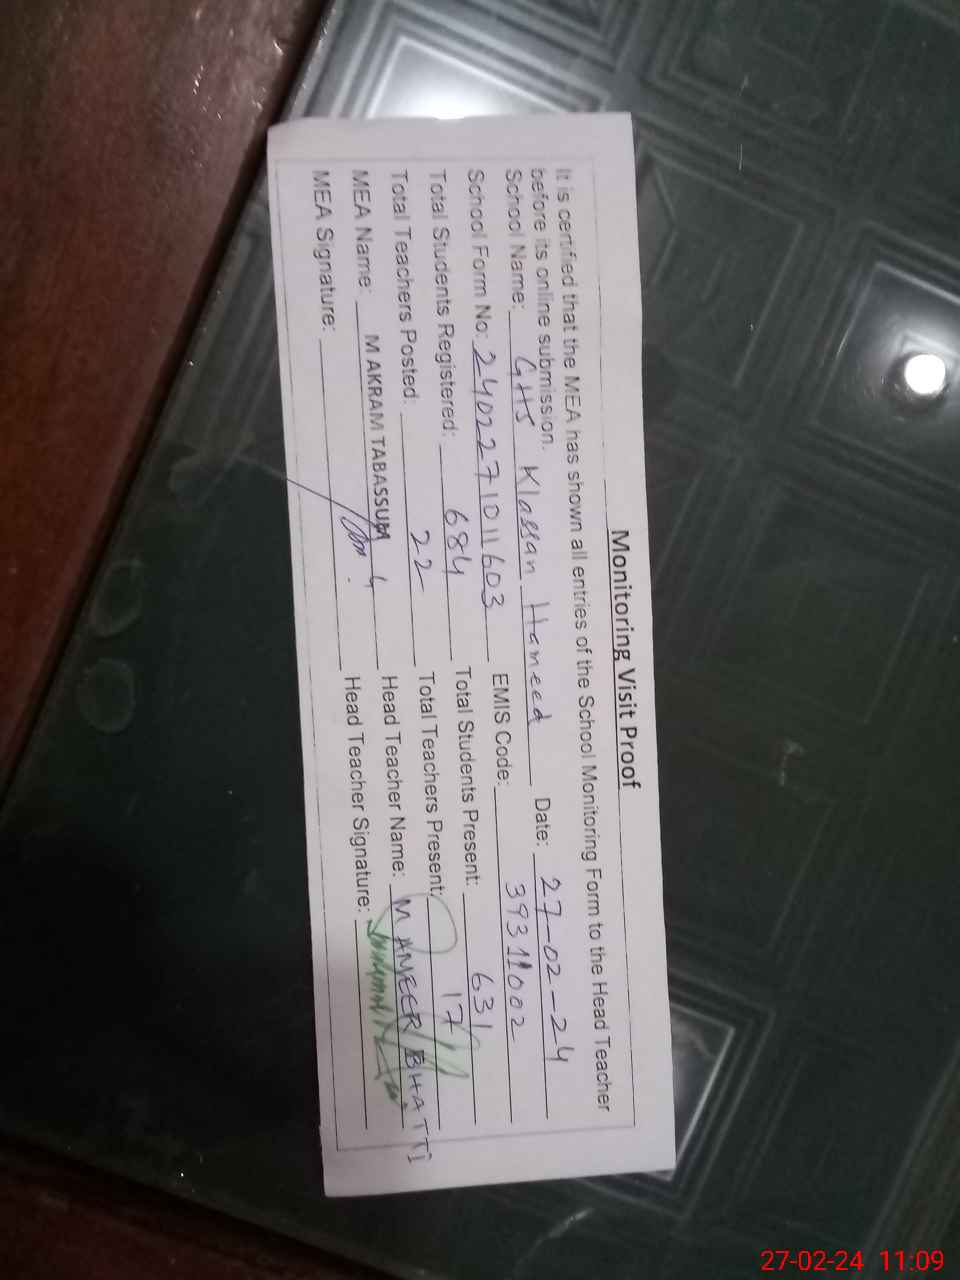 Monitoring Visit Proof
It is certified that the MEA has shown all entries of the School Monitoring Form to the Head Teacher
before its online submission.
School Name: GHS Klassan Hameed Date: 27-02-24
School Form No: 2402271011603 EMIS Code: 39311002
Total Students Registered: 684 Total Students Present: 631
Total Teachers Posted: 22 Total Teachers Present: 17
MEA Name: M AKRAM TABASSUM 4 Head Teacher Name: M AMEER BHATTI
MEA Signature: Head Teacher Signature:
27-02-24 11:09